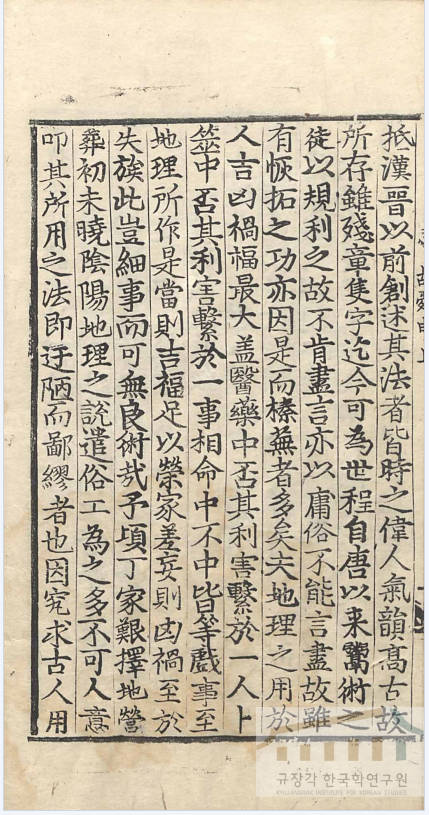 抵漢晋以前創述其法者皆時之偉人氣韻髙古故
所存雖殘章隻字迄今可為世程自唐以来鬻術之
徒以規利之故不肯盡言亦以庸俗不能言盡故雖
有恢拓之功亦因是而榛蕪者多矣夫地理之用於
人吉凶禍福最大盖醫藥中否其利害繫於一人卜
筮中否其利害繫於一事相命中不中皆等戲事至
地理所作是當則吉福足以榮家差妄則凶禍至於
失族此豈細事而可無良術㢤予頃丁家艱擇地營
葬初未曉陰陽地理之說遣俗工為之多不可人意
叩其所用之法即迂陋而鄙繆者也因究求古人用
규장각 한국학연구원
KYUJANGGAK INSTITUTE FOR KOREAN STUDIES